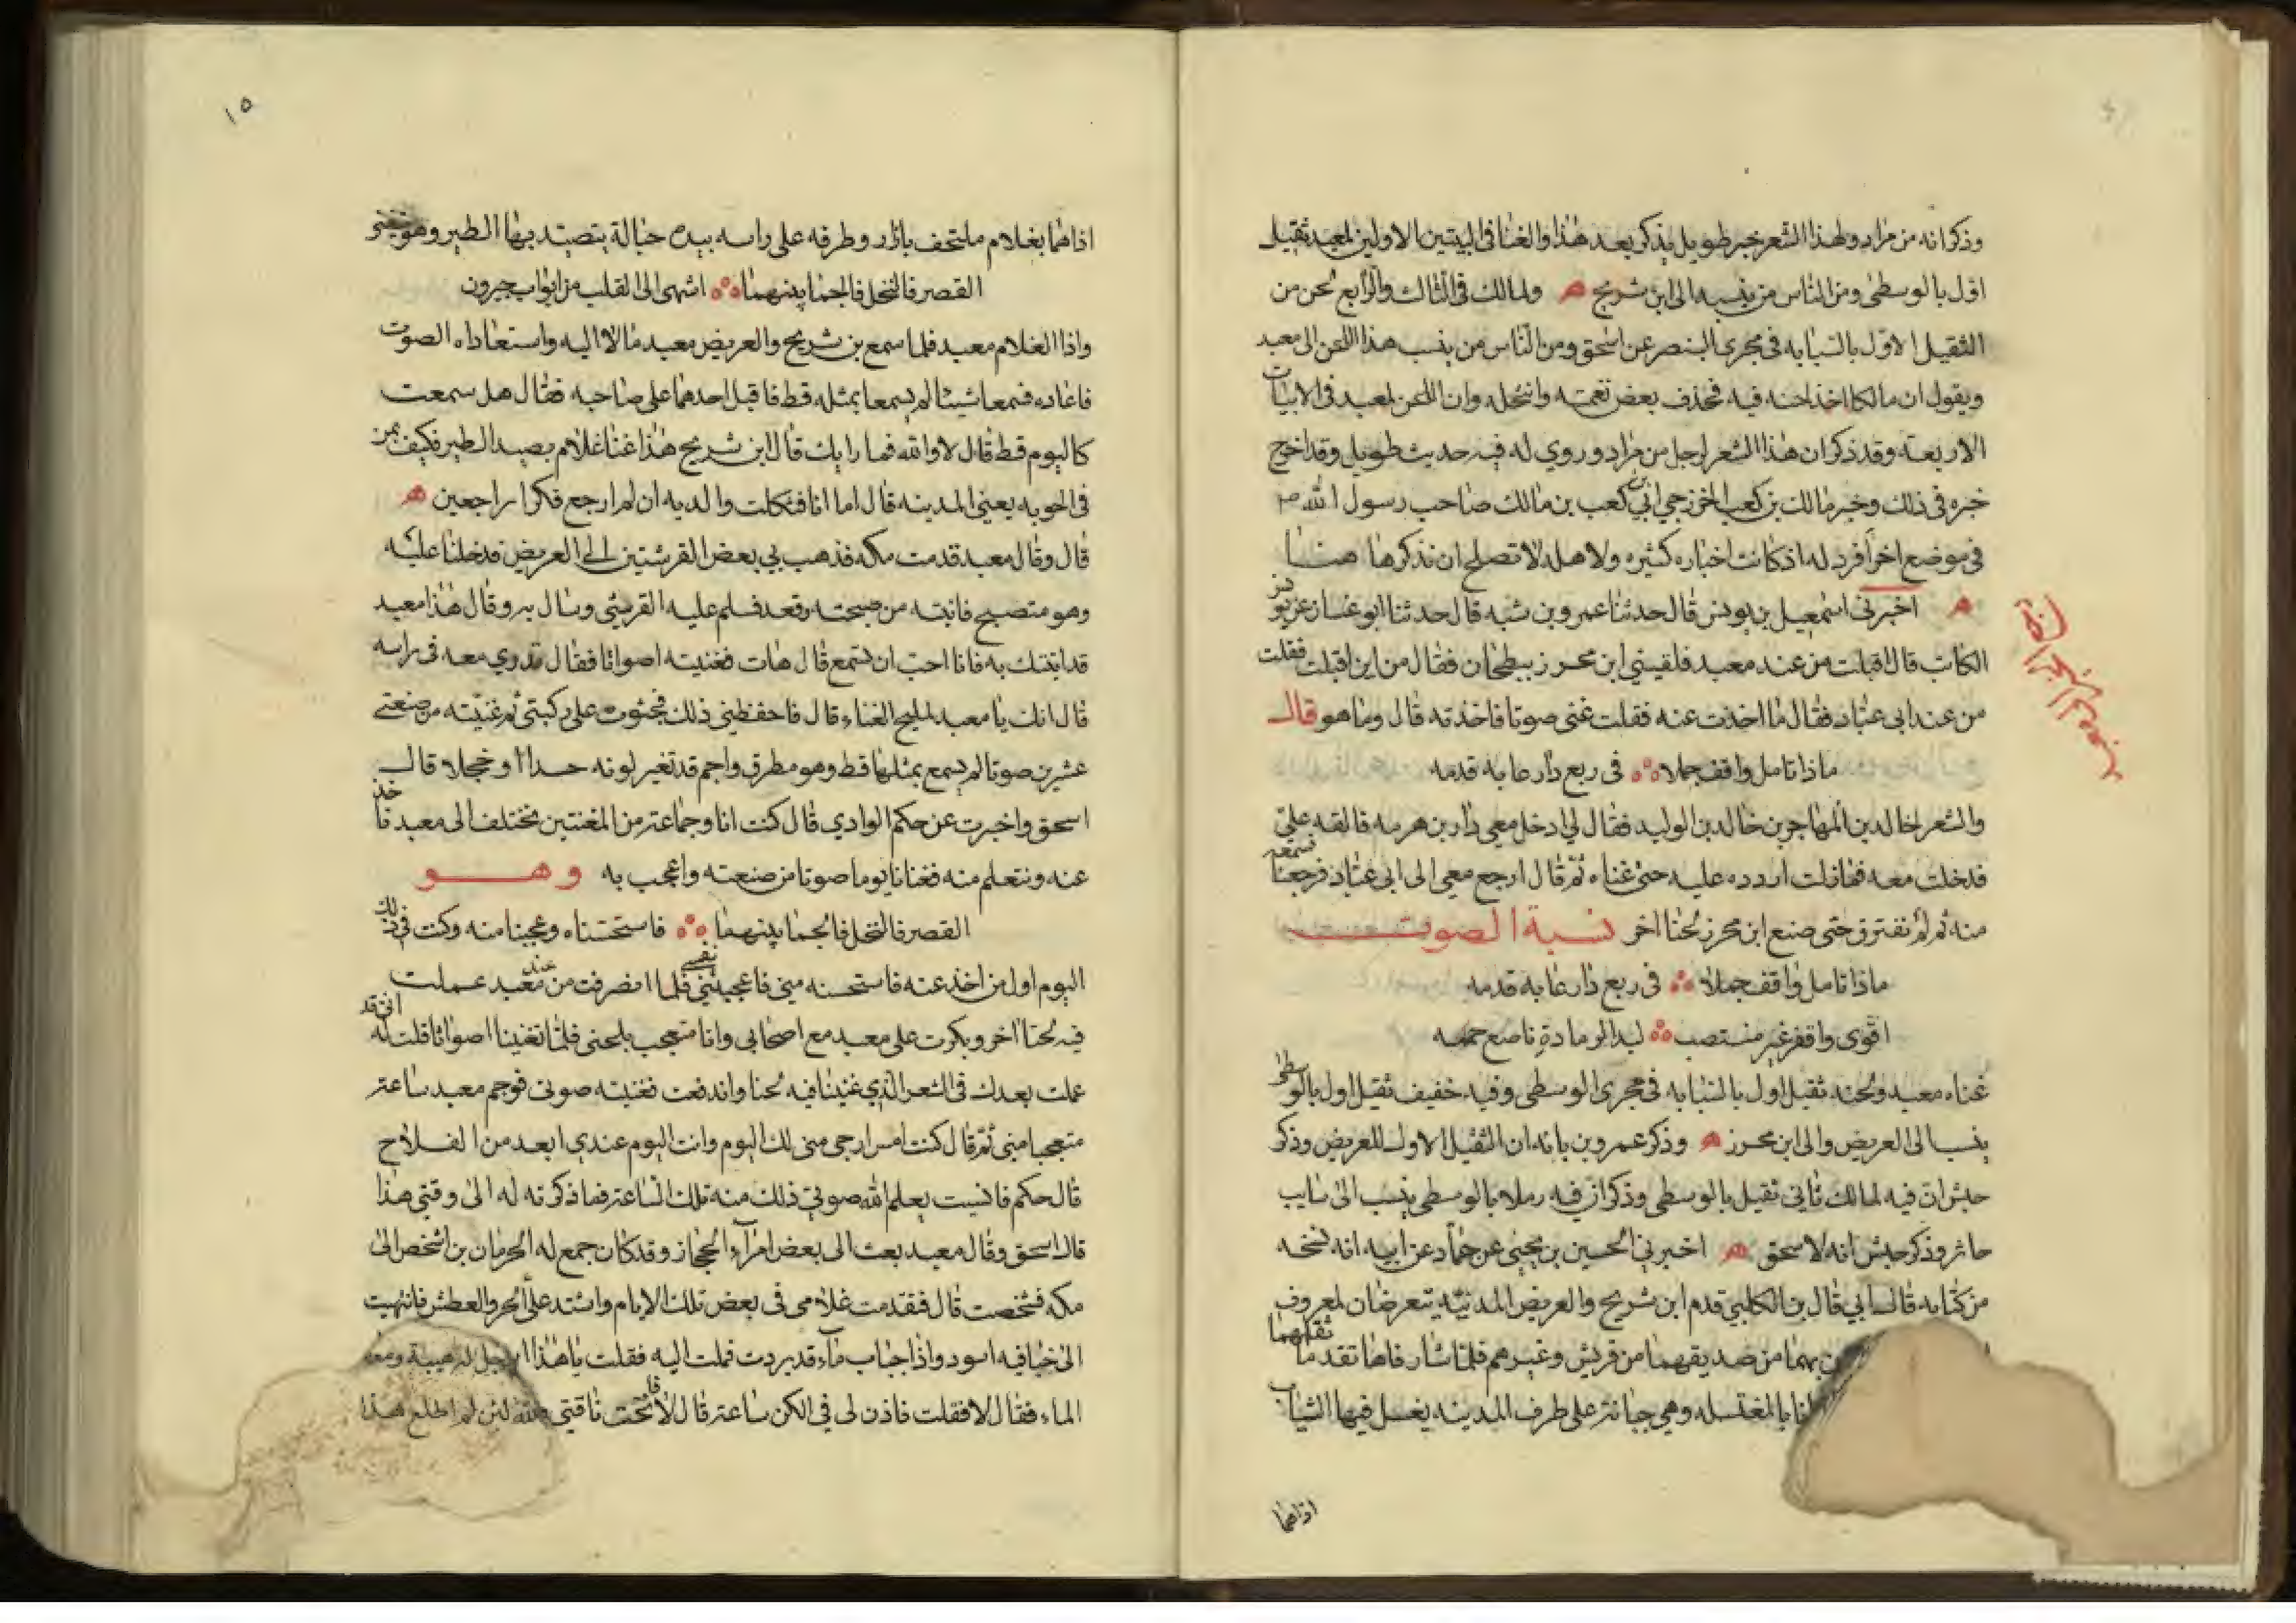 وذكر انه من مراد ولهذا الشعر خبر طويل يذكر بعد هذا والغنا فى البيتين الاولين لمعبد ثقيل
اول بالوسطى ومن الناس من ينسبه الى ابن شريح ه ولمالك فى الثالث والرابع لحن من
الثقيل الاول بالسبابه فى مجرى البنصر عن اسحق ومن الناس من ينسب هذا اللحن الى معبد
ويقول ان مالكا اخذ لحنه فيه فحذف بعض نغمته وانتحله وان اللحن لمعبد فى الابيات
الاربعة وقد ذكر ان هذا الشعر لرجل من مراد وروي له فيه حديث طويل وقد اخرج
خبره فى ذلك وخبر مالك بن كعب الخزرجي ابي كعب بن مالك صاحب رسول الله
فى موضع اخر افرد له اذ كانت اخباره كثيره ولاهله لا تصلح ان نذكرها هنا
ه اخبرنى اسمعيل بن يونس قال حدثنا عمرو بن شبه قال حدثنا ابو غسان عن يونس
الكاتب قال اقبلت من عند معبد فلقيني ابن محرز ببطحان فقال من اين اقبلت فقلت
من عند ابى عباد فقال ما اخذت عنه فقلت غنى صوتا فاخذته قال وما هو قال
ماذا تامل واقف جملا ه فى ربع دار عابه قدمه
والشعر لخالد بن المهاجر بن خالد بن الوليد فقال لي ادخل معي دار بن هرمه فالقه علي
فدخلت معه فمازلت اردده عليه حتى غناه ثم قال ارجع معي الى ابى عباد فرجعنا فسمعه
منه ثم لم نفترق حتى صنع ابن محرز لحنا اخر نسبة الصوت
ماذا تامل واقف جملا ه فى ربع دار عابه قدمه
اقوى واقفر غير منتصب ه لبد الرمادة ناصع حممه
غناه معبد ولحنه ثقيل اول بالسبابه فى مجرى الوسطى وفيه خفيف ثقيل اول بالوسطى
ينسب الى الغريض والى ابن محرز ه وذكر عمرو بن بانه ان الثقيل الاول للغريض وذكر
حبش ان فيه لمالك ثانى ثقيل بالوسطى وذكر ان فيه رملا بالوسطى ينسب الى سايب
خاثر وذكر حبش انه لاسحق ه اخبرنى الحسين بن يحيى عن حماد عن ابيه انه نسخه
من كتابه قال ابي قال بن الكلبي قدم ابن شريح والغريض المدينة يتعرضان لمعروف
بهما من صديقهما من قريش وغيرهم فلما شارفاها تقدما ثقلهما
بالمغتسله وهي جبانة على طرف المدينه يغسل فيها الثياب
اذاهما
١٥
اذاهما بغلام ملتحف بازار وطرفه على راسه بيده حبالة يتصيد بها الطير وهو يتغنى
القصر فالنخل فالجما بينهما ه اشهى الى القلب من ابواب جيرون
واذا الغلام معبد فلما سمع بن شريح والغريض معبد مالا اليه واستعاداه الصوت
فاعاده فسمعا شيئا لم يسمعا بمثله قط فاقبل احدهما على صاحبه فقال هل سمعت
كاليوم قط قال لا والله فما رايك قال ابن شريح هذا غنا غلام يصيد الطير فكيف بمن
فى الجوبه يعني المدينه قال اما انا فثكلت والديه ان لم ارجع فكرا راجعين ه
قال وقال معبد قدمت مكه فذهب بي بعض القرشيين الى الغريض فدخلنا عليه
وهو متصبح فانتبه من صبحته وقعد فسلم عليه القرشي وسال به وقال هذا معبد
قد اتيتك به فانا احب ان تسمع قال هات فغنيته اصواتا فقال بمدوي معه فى راسه
قال انك يا معبد لمليح الغناء قال فاحفظني ذلك فجثوت على ركبتي ثم غنيته من صنعتي
عشرين صوتا لم يسمع بمثلها قط وهو مطرق واجم قد تغير لونه حسدا او خجلا قال
اسحق واخبرت عن حكم الوادي قال كنت انا وجماعة من المغنين نختلف الى معبد ناخذ
عنه ونتعلم منه فغنانا يوما صوتا من صنعته واعجب به وهو
القصر فالنخل فالجما بينهما ه فاستحسناه وعجبنا منه وكنت فى ذلك
اليوم اول من اخذ عنه فاستحسنه مني فاعجبتني نفسي فلما انصرفت من عند معبد عملت
فيه لحنا اخر وبكرت على معبد مع اصحابى وانا متعجب بلحنى فلما تغنينا اصواتا قلت له انى قد
عملت بعدك فى الشعر الذي غنيتنا فيه لحنا واندفعت فغنيته صوتى فوجم معبد ساعة
متعجبا منى ثم قال كنت امس ارجى منى لك اليوم وانت اليوم عندي ابعد من الفلاح
قال حكم فانسيت يعلم الله صوتى ذلك منه تلك الساعة فما ذكرته له الى وقتي هذا
قال اسحق وقال معبد بعث الى بعض امراء الحجاز وقد كان جمع له الحرمان بن اشخص الى
مكه فشخصت قال فتقدمت غلامى فى بعض تلك الايام واشتد علي الحر والعطش فانتهيت
الى خبا فيه اسود واذا حباب ماء قد بردت فملت اليه فقلت يا هذا
الماء فقال لا فقلت فاذن لى فى الكن ساعة قال لا فانخت ناقتي